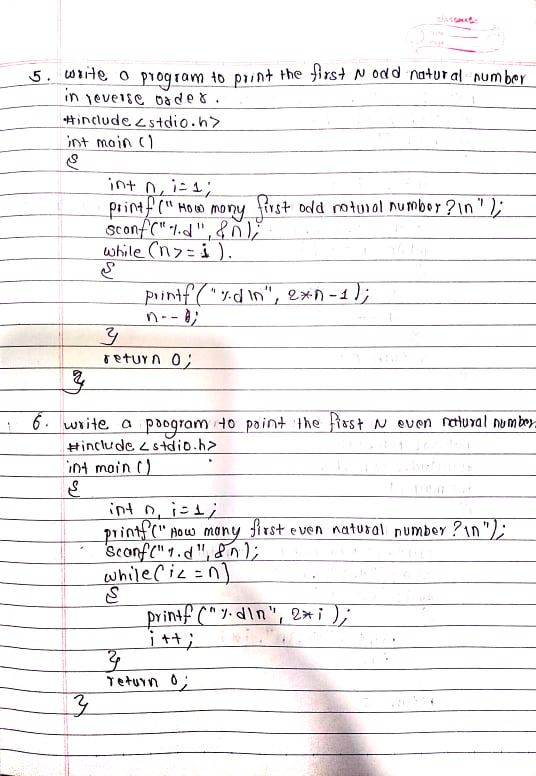 classmate
5. write a program to print the first N odd natural number
in reverse order.
#include <stdio.h>
int main ()
{
int n, i=1;
printf(" How many first odd natural number?\n");
scanf("%d", &n);
while (n>=i).
{
printf("%d\n", 2*n-1);
n--;
}
return 0;
}
6. write a program to print the first N even natural number.
#include <stdio.h>
int main ()
{
int n, i=1;
printf(" How many first even natural number?\n");
scanf("%d", &n);
while(i<=n)
{
printf("%d\n", 2*i);
i++;
}
return 0;
}